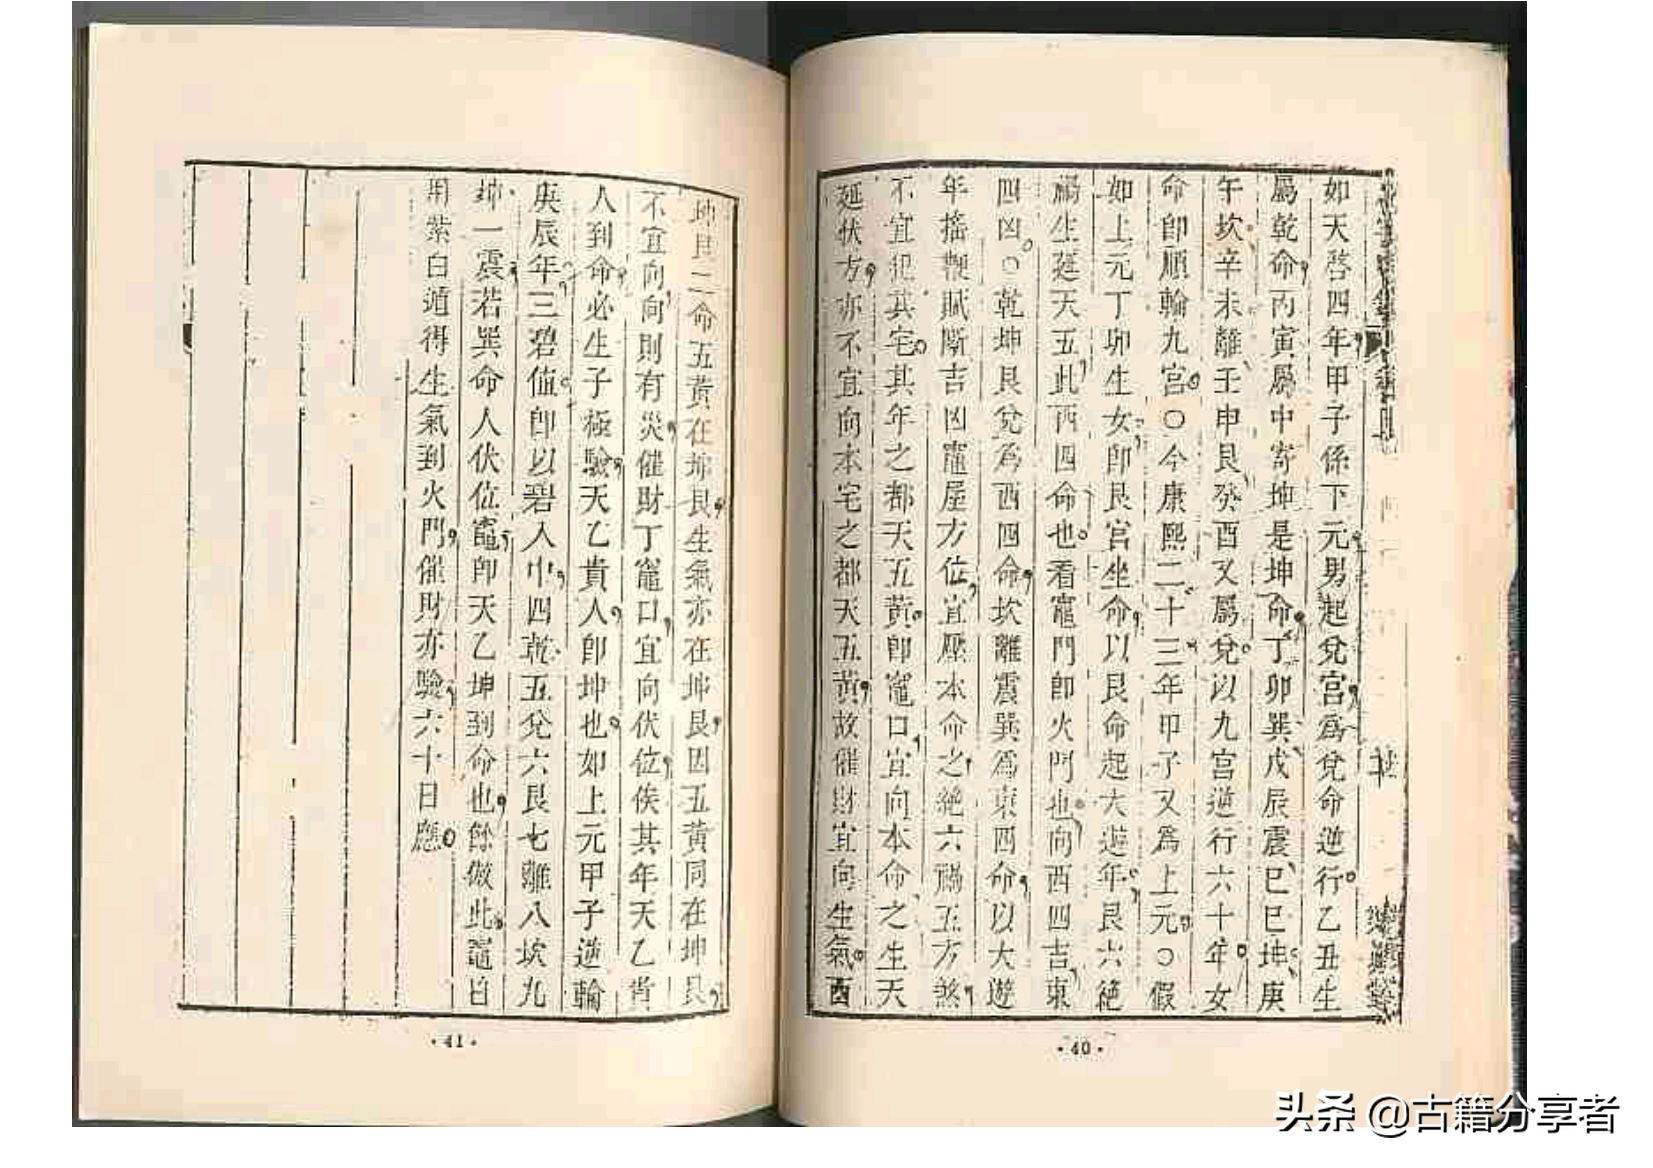 如天啓四年甲子係下元男起兌宮爲兌命逆行乙丑生
屬乾命丙寅屬中寄坤是坤命丁卯巽戊辰震己巳坤庚
午坎辛未離壬申艮癸酉又屬兌以九宮逆行六十年女
命卽順輪九宮○今康熙二十三年甲子又爲上元○假
如上元丁卯生女卽艮宮坐命以艮命起大遊年艮六絕
禍生延天五此西四命也看竈門卽火門也向西四吉東
四凶○乾坤艮兌爲西四命坎離震巽爲東四命以大遊
年搖鞭賦斷吉凶竈屋方位宜壓本命之絕六禍五方煞
不宜犯其宅其年之都天五黃卽竈口宜向本命之生天
延伏方亦不宜向本宅之都天五黃故催財宜向生氣酉
坤艮二命五黃在坤艮生氣亦在坤艮因五黃同在坤艮
不宜向向則有災催財丁竈口宜向伏位俟其年天乙肖
人到命必生子極驗天乙貴人卽坤也如上元甲子逆輪
庚辰年三碧值卽以碧入中四乾五兌六艮七離八坎九
坤一震若巽命人伏位竈卽天乙坤到命也餘倣此竈日
用紫白遁得生氣到火門催財亦驗六十日應
·41·
·40·
头条 @古籍分享者